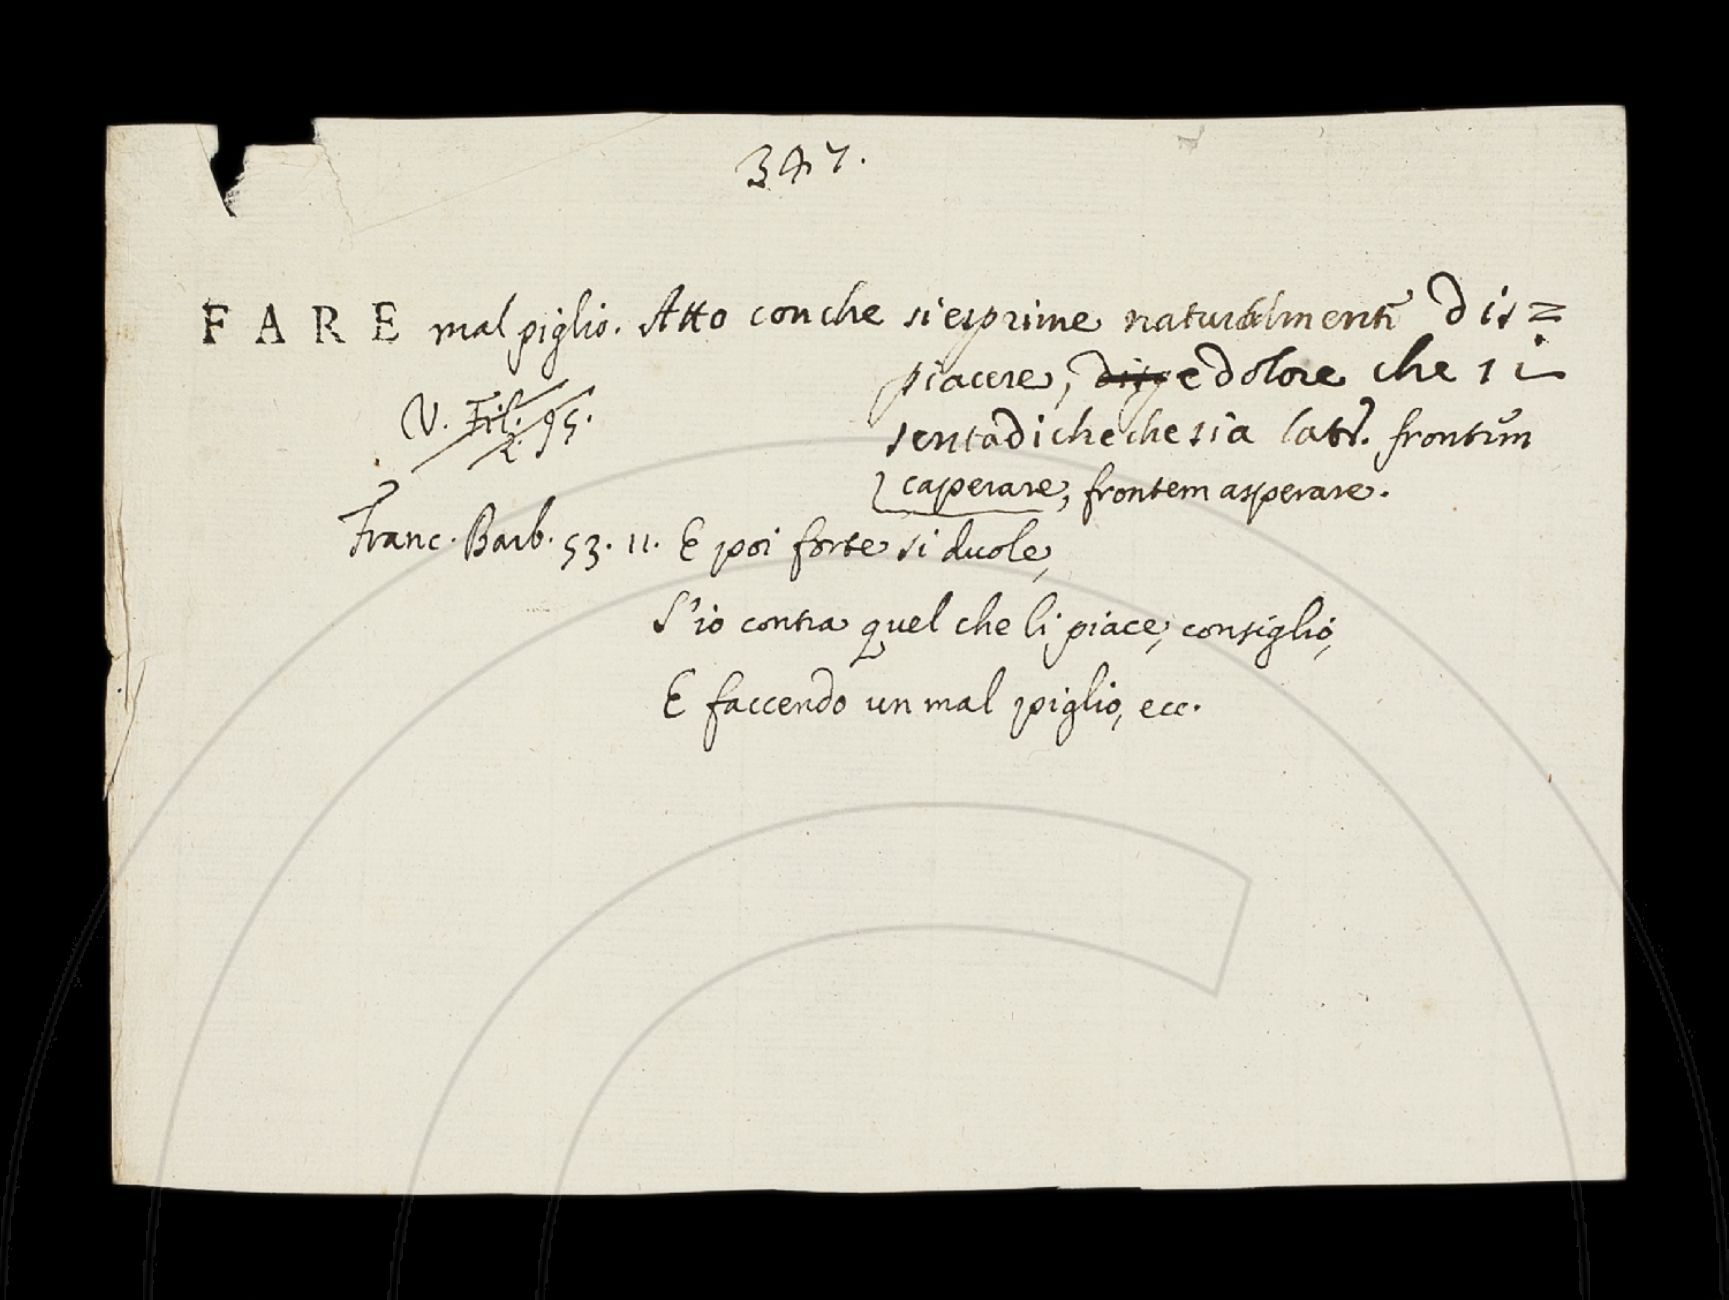 347.
FARE mal piglio. Atto con che si esprime naturalment̃ dis=
piacere, e dolore che si
senta di che che sia lat. frontem
caperare, frontem asperare.
V. Fil. 2. 95.
Franc. Barb. 53. 11. E poi forte si duole,
S'io contra quel che li piace, consiglio,
E faccendo un mal piglio, ecc.